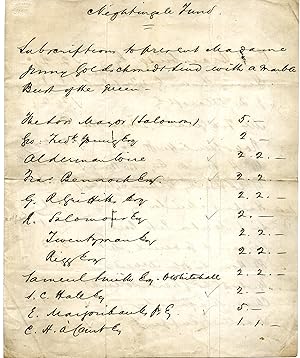 Nightingale Fund.
Subscriptions to present Madame
Jenny Goldschmidt Lind with a Marble
Bust of the Queen –
The Lord Mayor (Salomons) 5. –
Geo: Fredk Young Esq 2
Alderman Wire 2. 2. –
Fras. Bennoch Esq. 2. 2. –
G. R Griffiths Esq 2. 2. –
A. Salomons Esq 2. 2. –
Twentyman Esq 2. 2. –
Esq 2. 2. –
Samuel Smith Esq. Whitehall 2. 2. –
S. C. Hall Esq 2. 2. –
E. Marjoribanks 5. –
C. H. A Court Esq 1. 1. –